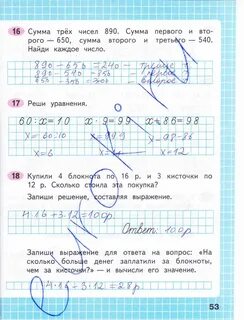 16 Сумма трёх чисел 890. Сумма первого и вто-
рого — 650, сумма второго и третьего — 540.
Найди каждое число.
890 - 650 = 240 -
890 - 540 = 350 -
17 Реши уравнения.
60 : x = 10 x · 9 = 99 x + 86 = 98
x = 60:10 x = 98-86
x = 6 x = 12
18 Купили 4 блокнота по 16 р. и 3 кисточки по
12 р. Сколько стоила эта покупка?
Запиши решение, составляя выражение.
4·16+3·12=100р.
Ответ: 100р
Запиши выражение для ответа на вопрос: «На
сколько больше денег заплатили за блокноты,
чем за кисточки?» — и вычисли его значение.
4·16-3·12=28р.
53